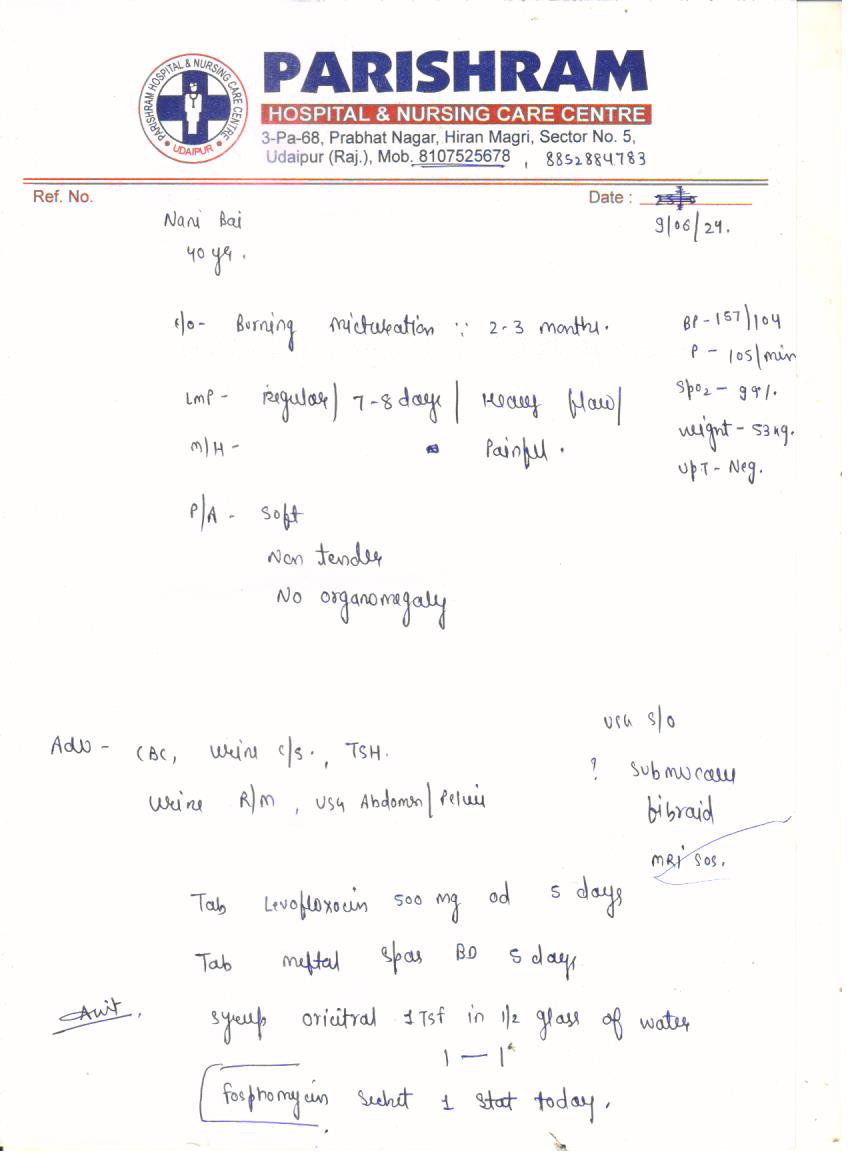 PARISHRAM HOSPITAL & NURSING CARE CENTRE
UDAIPUR
PARISHRAM
HOSPITAL & NURSING CARE CENTRE
3-Pa-68, Prabhat Nagar, Hiran Magri, Sector No. 5,
Udaipur (Raj.), Mob. 8107525678 , 8852884783
Ref. No.
Date :
9/06/24.
Nani Bai
40 yr.
c/o- Burning micturation ∵ 2-3 months.
BP - 157/104
P - 105/min
SpO2 - 99%.
weight - 53kg.
UPT - Neg.
LMP - Regular/ 7-8 days / Heavy flow/
M/H - Painful.
P/A - Soft
Non tender
No organomegaly
USG S/O
? Submucous
fibroid
MRI SOS.
Adv - CBC, Urine C/S., TSH.
Urine R/M, USG Abdomen/Pelvis
Tab Levofloxocin 500 mg od 5 days
Tab meftal spas BD 5 days
Syrup oricitral 1 Tsf in 1/2 glass of water
1 — 1
Fosphomycin Sachet 1 stat today.